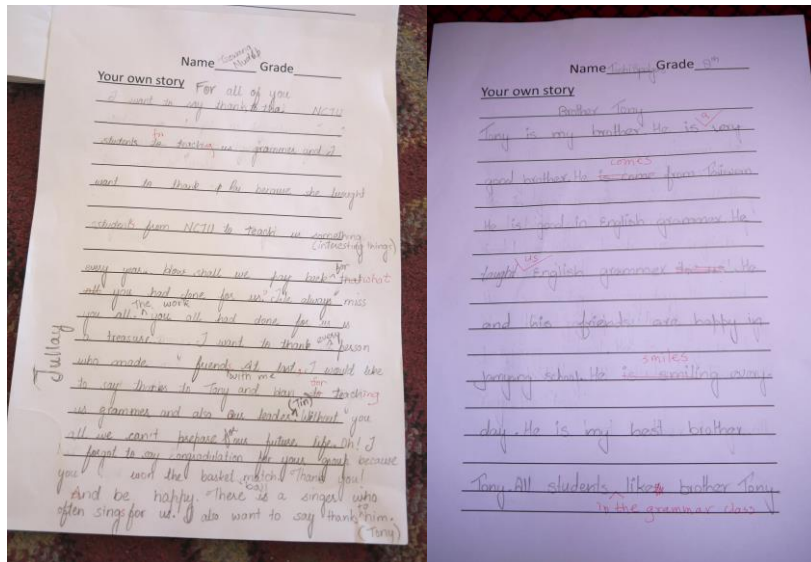 Name Grade
Your own story For all of you
I want to say thank to NCTU
students for teaching us grammer and I
want to thank because she brought
students from NCTU to teach us something
(interesting things)
every year. How shall we pay back for that what
all you had done for us. We always miss
you all. The work you all had done for us is
a treasure. I want to thank every person
who made friends with me at last. I would like
to say thanks to Tony and for teaching
us grammer and also our leader (Tin) without you
all we can't prepare for our future life. Oh! I
forgot to say congradulation for your group because
you won the basket ball match. Thank you!
And be happy. There is a singer who
often sings for us. I also want to say thank to him.
(Tony)
Jullay
Name Grade 8th
Your own story
Brother Tony
Tony is my brother. He is a very
good brother. He is come comes from Taiwan
He is good in English grammer. He
taught us English grammer. He
and his friends are happy in
school. He is smiling smiles every
day. He is my best brother
Tony. All students like brother Tony
in the grammar class